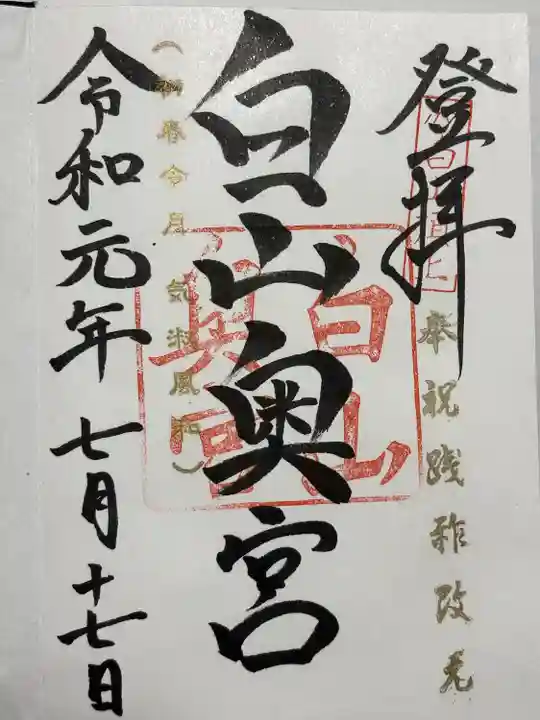 登拝
奉祝践祚改元
白山奥宮
白山奥宮
(初春令月 気淑風和)
令和元年 七月 十七日